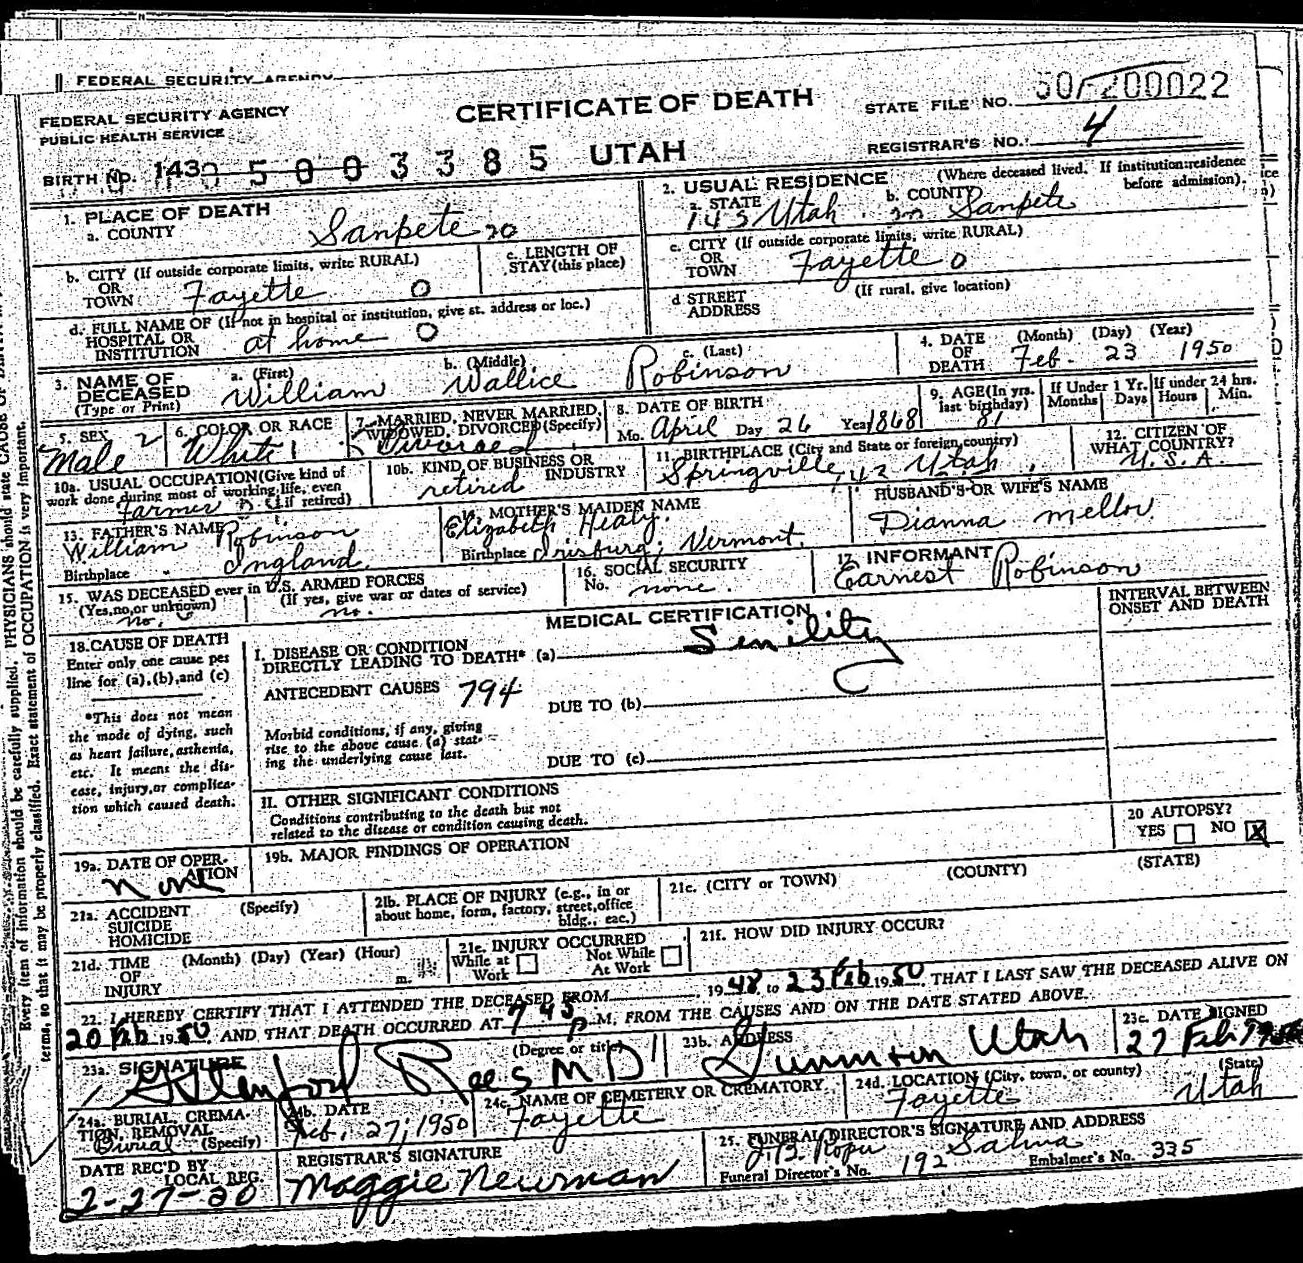 FEDERAL SECURITY AGENCY
FEDERAL SECURITY AGENCY
PUBLIC HEALTH SERVICE
CERTIFICATE OF DEATH
STATE FILE NO. 200022
UTAH
REGISTRAR'S NO. 4
BIRTH NO. 143
1. PLACE OF DEATH
a. COUNTY Sanpete 20
2. USUAL RESIDENCE (Where deceased lived. If institution: residence before admission).
a. STATE Utah b. COUNTY Sanpete
b. CITY (If outside corporate limits, write RURAL)
OR
TOWN Fayette 0
c. LENGTH OF
STAY (this place)
c. CITY (If outside corporate limits, write RURAL)
OR
TOWN Fayette 0
d. FULL NAME OF (If not in hospital or institution, give st. address or loc.)
HOSPITAL OR
INSTITUTION at home 0
d STREET (If rural, give location)
ADDRESS
3. NAME OF DECEASED (Type or Print)
a. (First) William b. (Middle) Wallice c. (Last) Robinson
4. DATE OF DEATH (Month) (Day) (Year)
Feb. 23 1950
5. SEX Male 2
6. COLOR OR RACE White 1
7. MARRIED, NEVER MARRIED, WIDOWED, DIVORCED (Specify)
Divorced
8. DATE OF BIRTH
Mo. April Day 26 Year 1868
9. AGE (In yrs. last birthday) 81
If Under 1 Yr. Months Days
If under 24 hrs. Hours Min.
10a. USUAL OCCUPATION (Give kind of work done during most of working life, even if retired)
Farmer
10b. KIND OF BUSINESS OR INDUSTRY
retired
11. BIRTHPLACE (City and State or foreign country)
Springville, Utah
12. CITIZEN OF WHAT COUNTRY?
U.S.A.
13. FATHER'S NAME
William Robinson
Birthplace England
MOTHER'S MAIDEN NAME
Elizabeth Healy.
Birthplace Vermont.
HUSBAND'S OR WIFE'S NAME
Dianna Mellor
15. WAS DECEASED ever in U.S. ARMED FORCES
(Yes, no, or unknown) (If yes, give war or dates of service)
no. no.
16. SOCIAL SECURITY
No. none.
17. INFORMANT
Earnest Robinson
MEDICAL CERTIFICATION
INTERVAL BETWEEN ONSET AND DEATH
18. CAUSE OF DEATH
Enter only one cause per line for (a), (b), and (c)
*This does not mean the mode of dying, such as heart failure, asthenia, etc. It means the disease, injury, or complication which caused death.
I. DISEASE OR CONDITION
DIRECTLY LEADING TO DEATH* (a) Senility
ANTECEDENT CAUSES 794
DUE TO (b)
Morbid conditions, if any, giving rise to the above cause (a) stating the underlying cause last.
DUE TO (c)
II. OTHER SIGNIFICANT CONDITIONS
Conditions contributing to the death but not
related to the disease or condition causing death.
19a. DATE OF OPERATION
None
19b. MAJOR FINDINGS OF OPERATION
20 AUTOPSY?
YES NO X
21a. ACCIDENT (Specify)
SUICIDE
HOMICIDE
21b. PLACE OF INJURY (e.g., in or about home, form, factory, street, office bldg., eac.)
21c. (CITY or TOWN) (COUNTY) (STATE)
21d. TIME OF INJURY (Month) (Day) (Year) (Hour) m.
21e. INJURY OCCURRED
While at Work Not While At Work
21f. HOW DID INJURY OCCUR?
22. I HEREBY CERTIFY THAT I ATTENDED THE DECEASED FROM 1948 to 23 Feb 1950, THAT I LAST SAW THE DECEASED ALIVE ON
20 Feb 1950 AND THAT DEATH OCCURRED AT 7 45 p.M, FROM THE CAUSES AND ON THE DATE STATED ABOVE.
23a. SIGNATURE (Degree or title)
Rees MD
23b. ADDRESS
Gunnison Utah
23c. DATE SIGNED
27 Feb 1950
24a. BURIAL, CREMATION, REMOVAL (Specify)
Burial
24b. DATE
Feb. 27, 1950
24c. NAME OF CEMETERY OR CREMATORY
Fayette
24d. LOCATION (City, town, or county) (State)
Fayette Utah
DATE REC'D BY LOCAL REG.
2-27-50
REGISTRAR'S SIGNATURE
Maggie Newman
25. FUNERAL DIRECTOR'S SIGNATURE AND ADDRESS
Salina
Funeral Director's No. 192 Embalmer's No. 335
Every item of information should be carefully supplied. PHYSICIANS should state CAUSE OF DEATH in
terms, so that it may be properly classified. Exact statement of OCCUPATION is very important.